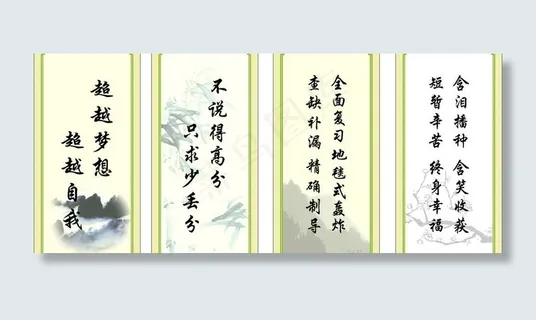 超越梦想
超越自我
不说得高分
只求少丢分
全面复习 地毯式轰炸
查缺补漏 精确制导
含泪播种 含笑收获
短暂辛苦 终身幸福